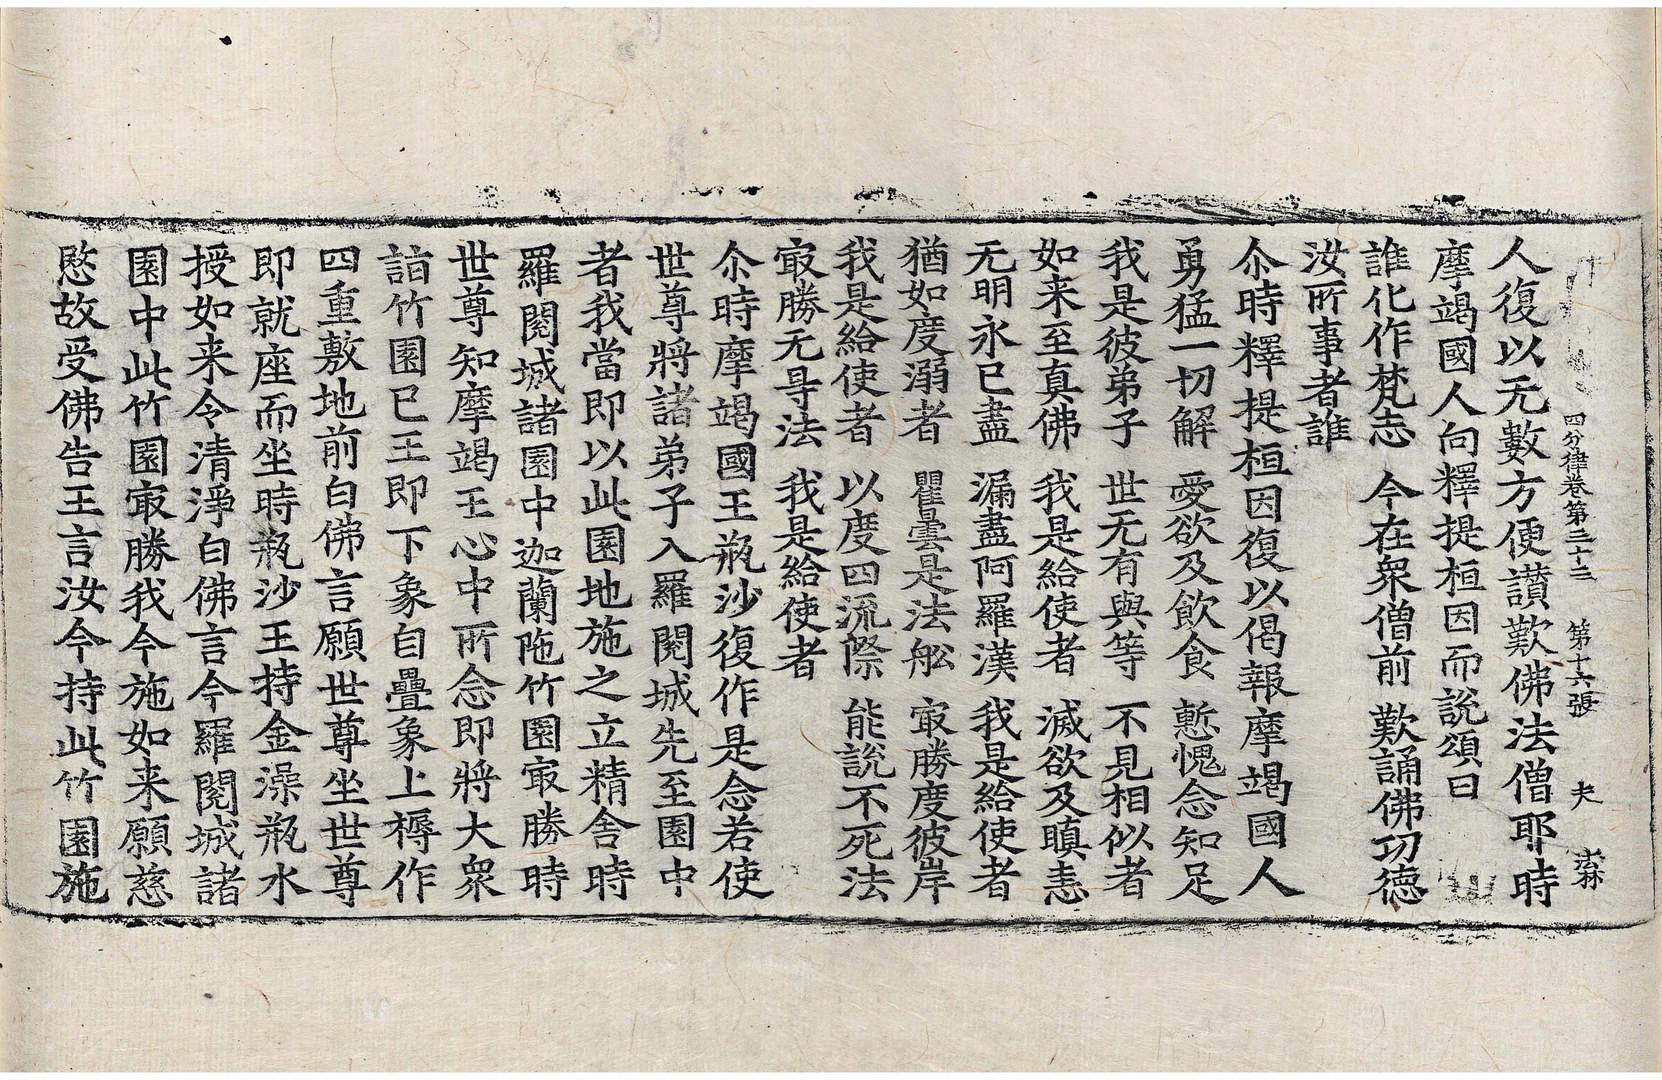 四分律卷第三十三 第十六張 夫
人復以无數方便讃歎佛法僧耶時
摩竭國人向釋提桓因而說頌曰
誰化作梵志 今在衆僧前 歎誦佛功德
汝所事者誰
尒時釋提桓因復以偈報摩竭國人
勇猛一切解 愛欲及飲食 慙愧念知足
我是彼弟子 世无有與等 不見相似者
如来至真佛 我是給使者 滅欲及瞋恚
无明永已盡 漏盡阿羅漢 我是給使者
猶如度溺者 瞿曇是法舩 㝡勝度彼岸
我是給使者 以度四流際 能說不死法
㝡勝无㝵法 我是給使者
尒時摩竭國王瓶沙復作是念若使
世尊將諸弟子入羅閱城先至園中
者我當即以此園地施之立精舍時
羅閱城諸園中迦蘭陁竹園㝡勝時
世尊知摩竭王心中所念即將大衆
詣竹園已王即下象自疊象上褥作
四重敷地前白佛言願世尊坐世尊
即就座而坐時瓶沙王持金澡瓶水
授如来令清淨白佛言今羅閱城諸
園中此竹園㝡勝我今施如来願慈
愍故受佛告王言汝今持此竹園施